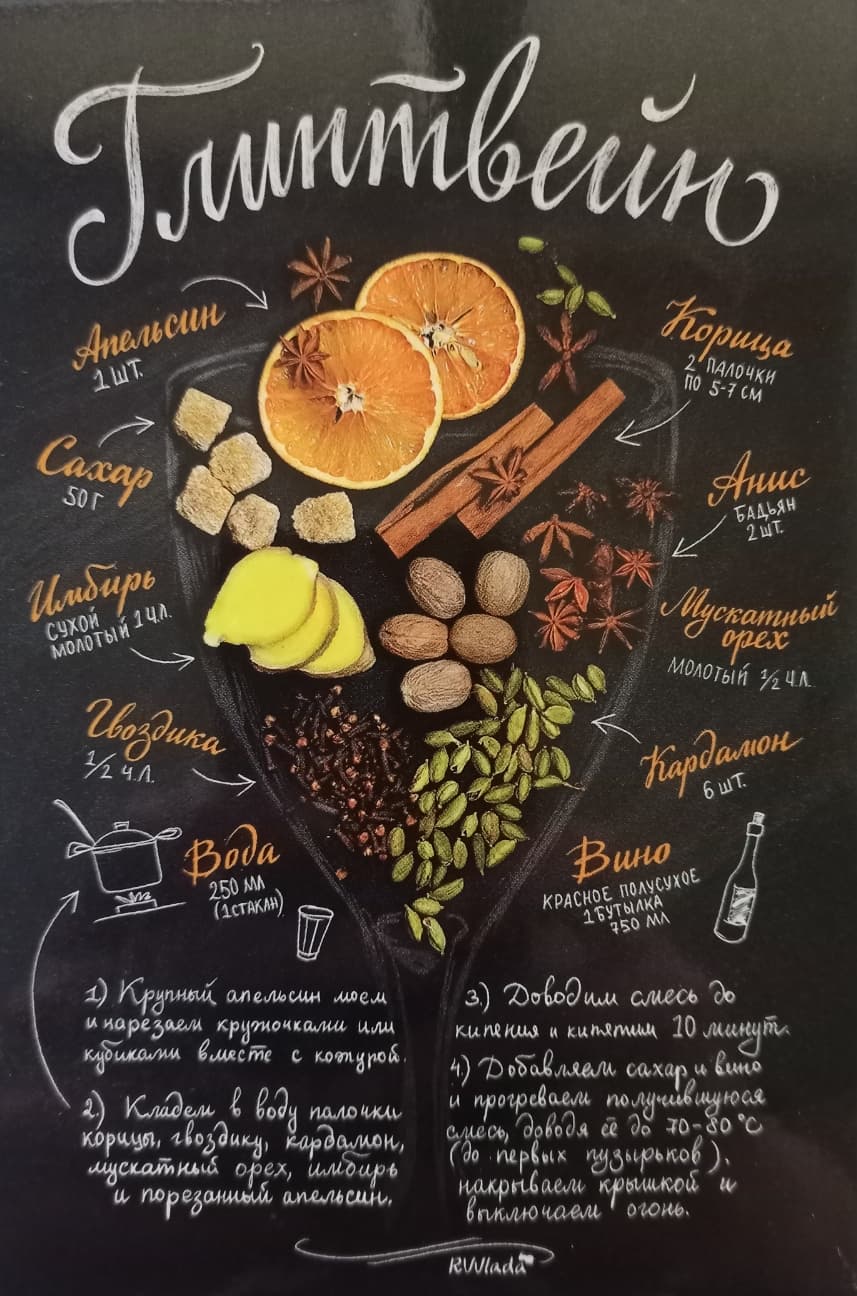 Глинтвейн
Апельсин
1 шт.
Сахар
50 г
Имбирь
сухой
молотый 1 ч.л.
Гвоздика
1/2 ч.л.
Вода
250 мл
(1 стакан)
Корица
2 палочки
по 5-7 см
Анис
бадьян
2 шт.
Мускатный
орех
молотый 1/2 ч.л.
Кардамон
6 шт.
Вино
красное полусухое
1 бутылка
750 мл
1) Крупный апельсин моем
и нарезаем кружочками или
кубиками вместе с кожурой.
2.) Кладем в воду палочки
корицы, гвоздику, кардамон,
мускатный орех, имбирь
и порезанный апельсин.
3.) Доводим смесь до
кипения и кипятим 10 минут.
4.) Добавляем сахар и вино
и прогреваем получившуюся
смесь, доводя её до 70-80 °C
(до первых пузырьков),
накрываем крышкой и
выключаем огонь.
RWlada